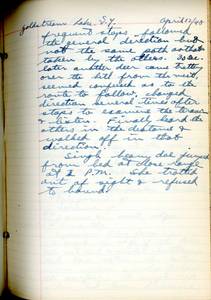 Lake, N.Y. April 17/48
frequent stops followed
the general direction but
not the same path as that
taken by the others.
later another deer came trotting
over the hill from the west,
seemed confused as to the
route to follow, changed
direction several times after
stops to examine the terrain
& listen. Finally heard the
others in the distance &
walked off in that
direction.
Single beany doe jumped
from bed at close range
at 2 P.M. She trotted
out of sight & refused
to bound.